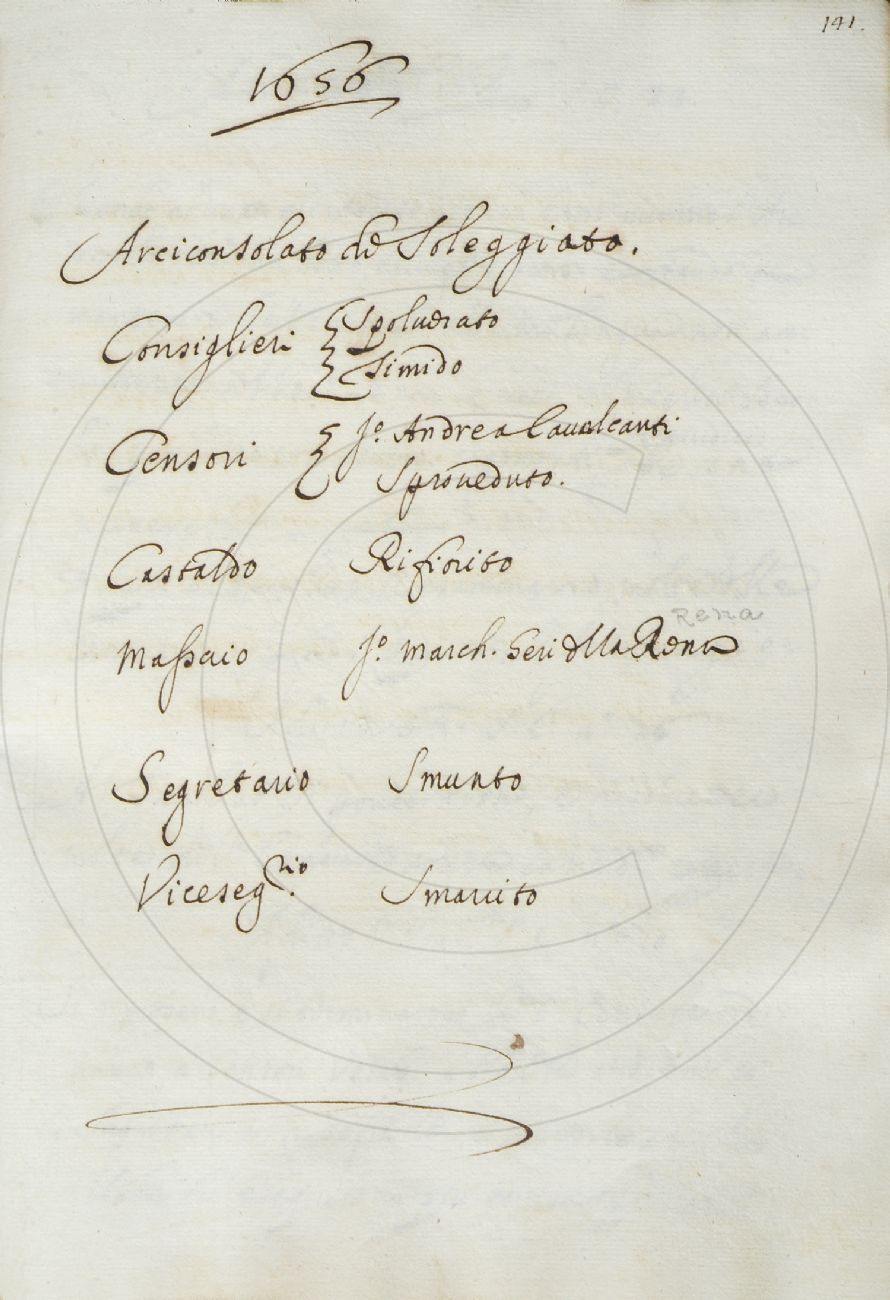 141.
1656
Arciconsolato del Soleggiato.
Consiglieri { Spoluerato
{ Timido
Censori { Sr. Andrea Caualcanti
Sproueduto.
Castaldo Rifiorito
Rena
Massaio Sr. march. Geri della Rena
Segretario Smunto
Viceseg.rio Smarrito